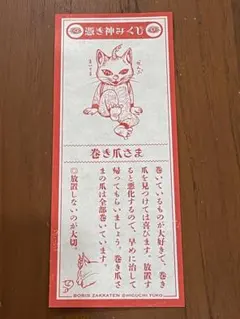 憑き神
巻き爪さま
巻いているものが大好きで、巻き
爪を見つけては喜びます。放置す
ると悪化するので、早めに治して
帰ってもらいましょう。巻き爪さ
まの爪は全部巻いています。
◎放置しないのが大切。
BORIS ZAKKATEN ©HIGUCHI YUKO